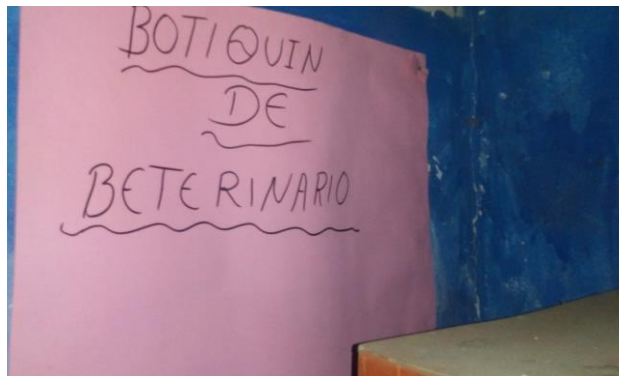 BOTIQUIN
DE
BETERINARIO